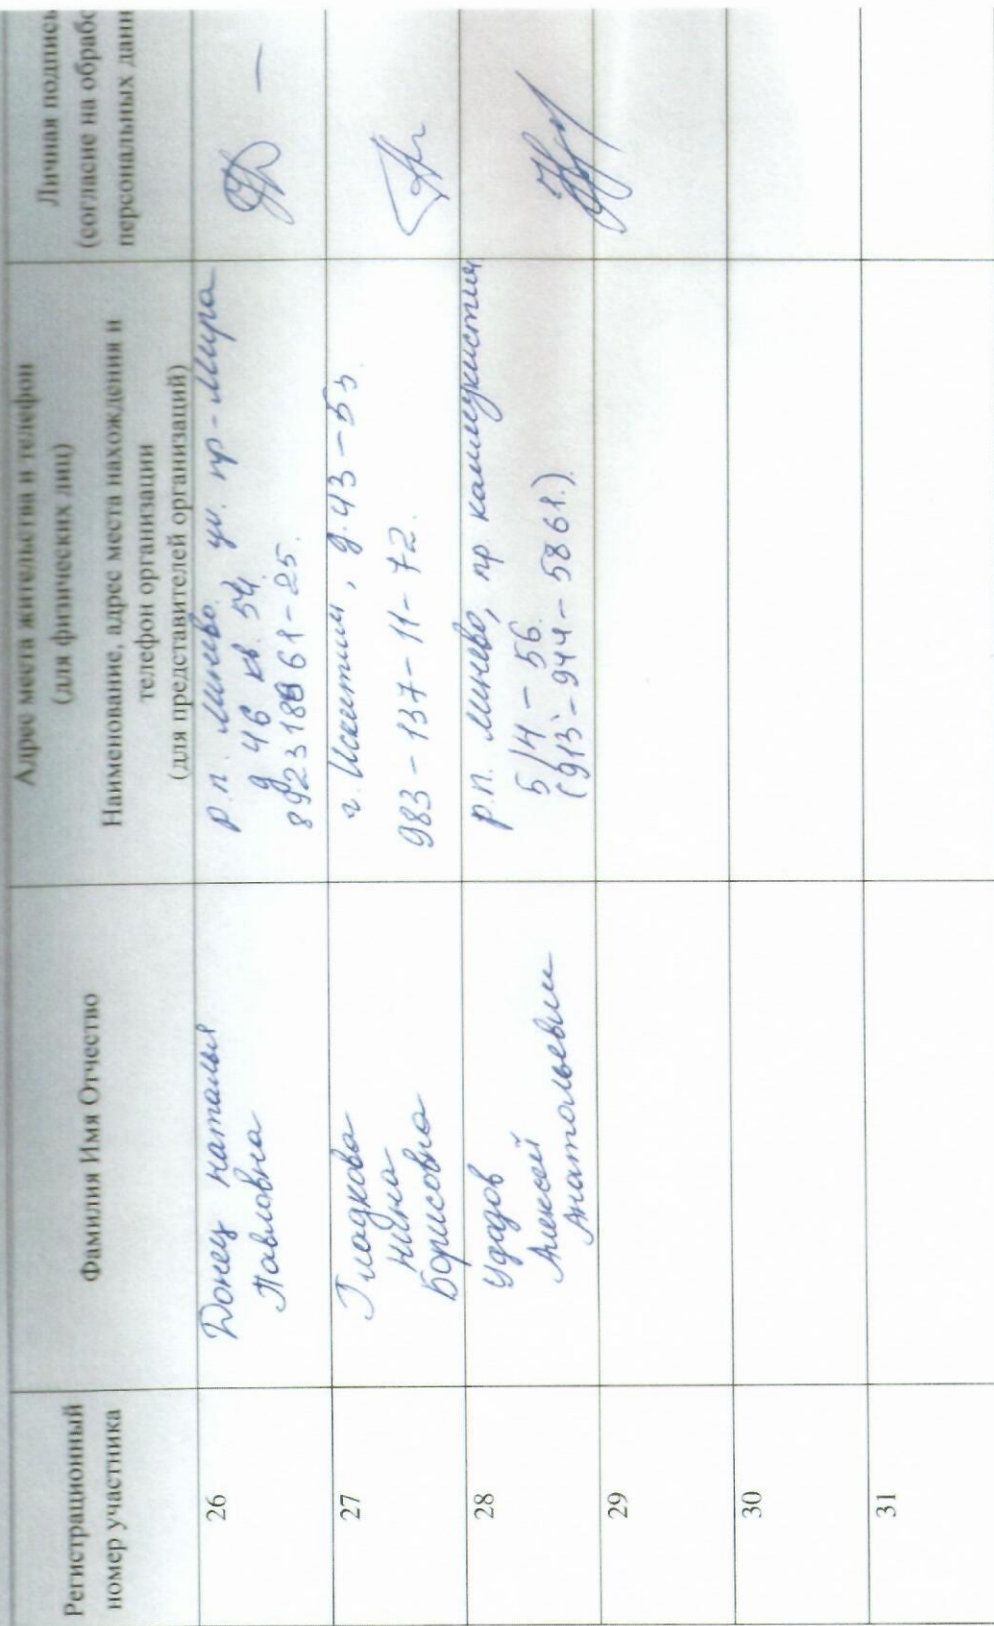 Регистрационный
номер участника
Фамилия Имя Отчество
Адрес места жительства и телефон
(для физических лиц)
Наименование, адрес места нахождения и
телефон организации
(для представителей организаций)
Личная подпись
(согласие на обрабо
персональных данн
26
Донец Наталья
Павловна
р.п. Линево ул. пр-Мира
д 46 кв. 54
61-25.
27
Гладкова
Нина
Борисовна
г. Искитим, д. 43-53.
983-137-11-72.
28
Удодов
Алексей
Анатольевич
р.п. Линево, пр.
5/4-56.
(913-944-5861.).
29
30
31